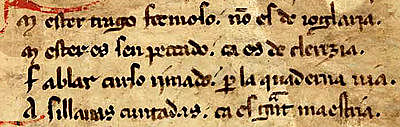 M ester trago fermoso. nõ es de ioglaria.
M ester es sen peccado. ca es de clerezia.
F ablar curso rimado. ꝑ la quaderna uia.
A sillauas cuntadas. ca es grãt maestria.